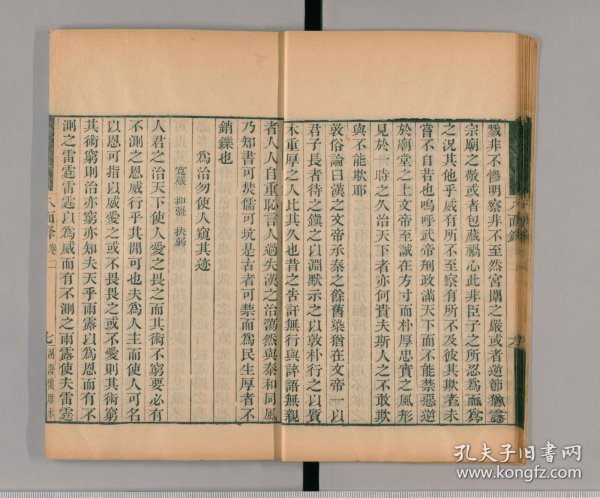 戮非不慘明察非不至然宮闈之嚴或者逆節猶露
宗廟之敬或者包藏禍心此非臣子之所忍為而為
之況其他乎威有所不至察有所不及彼其欺者未
嘗不自若也嗚呼武帝刑政滿天下而不能禁惡逆
於廟堂之上文帝至誠在方寸而朴厚忠實之風形
見於一時之久治天下者亦何貴夫斯人之不敢欺
與不能欺耶
敦俗論曰漢之文帝承秦之餘舊染猶在文帝一以
君子長者待之鎮之以淵默示之以敦朴行之以質
木重厚之人此其久也昔之告訐無行與誶語無親
者人人自重恥言人過失漢之治藹然與秦和同風
乃知書可焚儒可坑是古者可禁而為民生厚者不
銷鑠也
為治勿使人窺其迹
寬嚴 抑強 扶弱
人君之治天下使人愛之畏之而其術不窮要必有
不測之恩威行乎其間可也夫為人主而使人可名
以恩可指以威愛之或不畏畏之或不愛則其術窮
其術窮則治亦窮亦知夫天乎雨露以為恩而有不
測之雷霆雷霆以為威而有不測之雨露使夫雷霆
八面鋒
八面鋒 卷二
七
孔夫子旧书网
www.kongfz.com